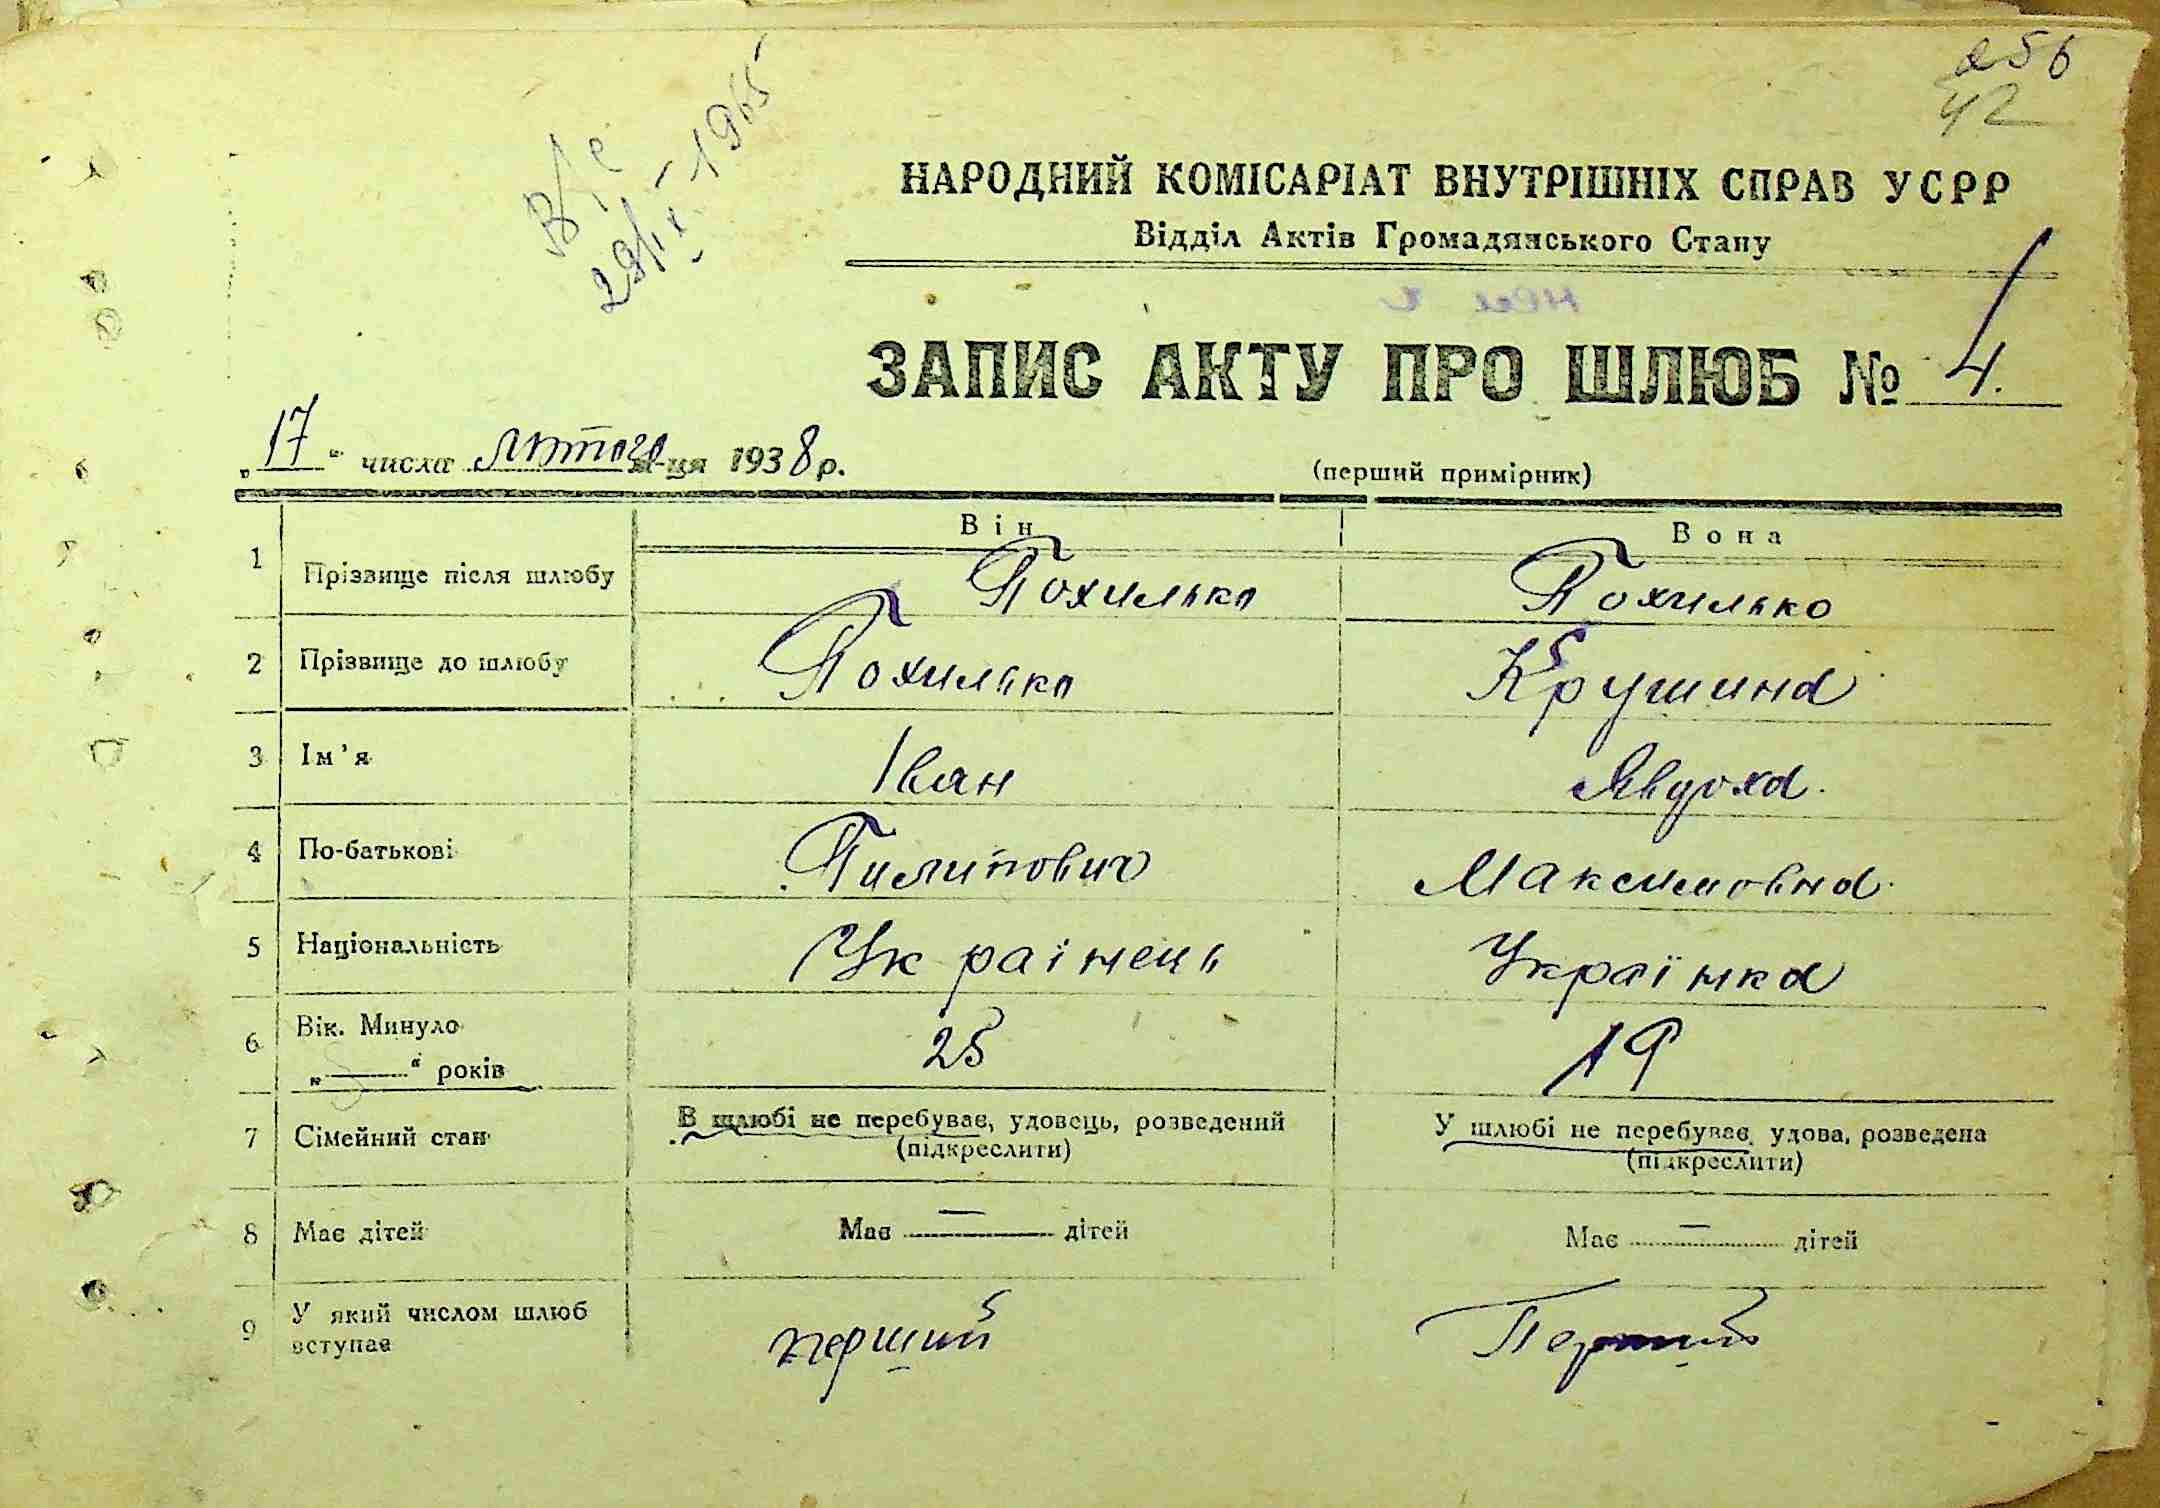 256
42
В/с
29/IX-1965
НАРОДНИЙ КОМІСАРІАТ ВНУТРІШНІХ СПРАВ УСРР
Відділ Актів Громадянського Стану
ЗАПИС АКТУ ПРО ШЛЮБ № 4.
„17“ числа лютого м-ця 1938 р.
(перший примірник)
Він Вона
1 Прізвище після шлюбу Похилько Похилько
2 Прізвище до шлюбу Похилько Крушина
3 Ім'я Іван Явдоха.
4 По-батькові Пилипович Максимовна
5 Національність Українець Українка
6 Вік. Минуло „—“ років 25 19
7 Сімейний стан В шлюбі не перебуває, удовець, розведений У шлюбі не перебуває, удова, розведена
(підкреслити) (підкреслити)
8 Має дітей Має — дітей Має — дітей
9 У який числом шлюб вступає перший Перший